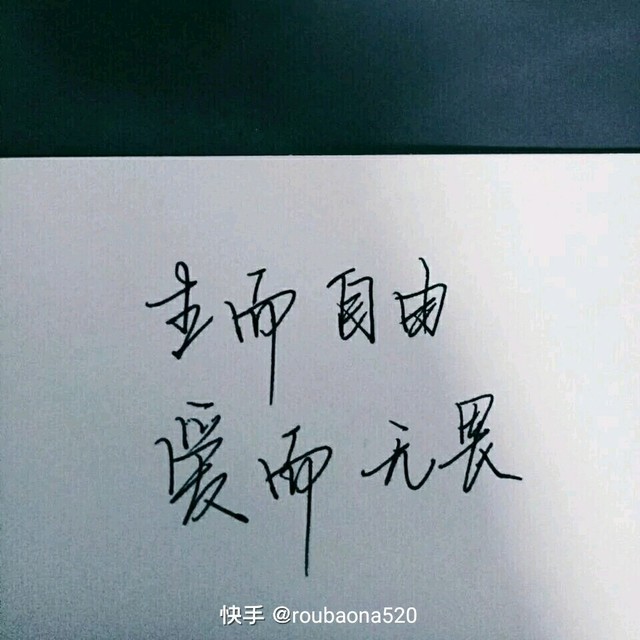 生而自由
爱而无畏
快手 @roubaona520